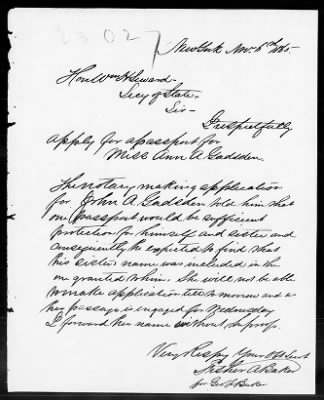 28027
New York Nov. 6th 1865.
Hon Wm H Seward.
Secy of State.
Sir.
I respectfully
apply for a passport for
Miss Ann A. Gadsden.
The notary making application
for John A Gadsden told him that
one passport would be sufficient
protection for himself and sister and
consequently he expected to find that
his sister name was included in the
one granted to him. She will not be able
to make application till tomorrow and as
her passage is engaged for Wednesday
I forward her name without the proof.
Very Respy Your Obt Servt
Baker
for Geo Baker